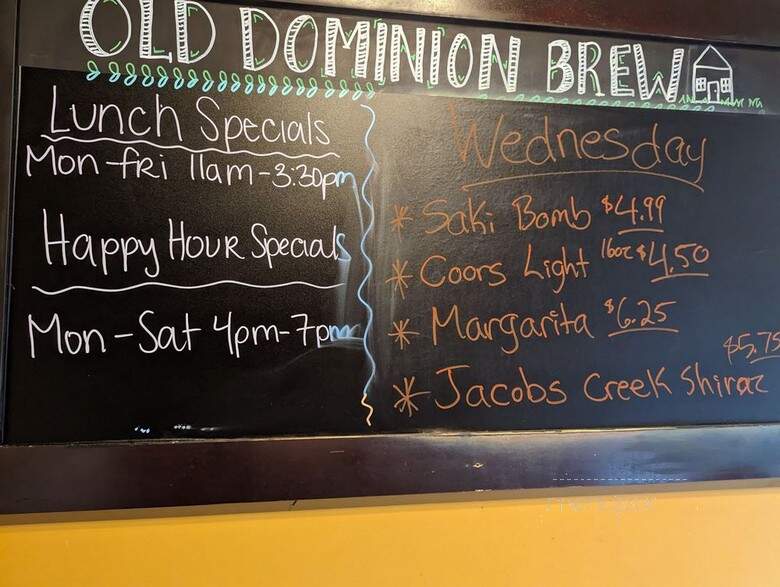 OLD DOMINION BREW
Lunch Specials
Mon-fri 11am-3:30pm
Happy Hour Specials
Mon-Sat 4pm-7pm
Wednesday
* Saki Bomb $4.99
* Coors Light 16oz $4.50
* Margarita $6.25
* Jacobs Creek Shiraz $5.75